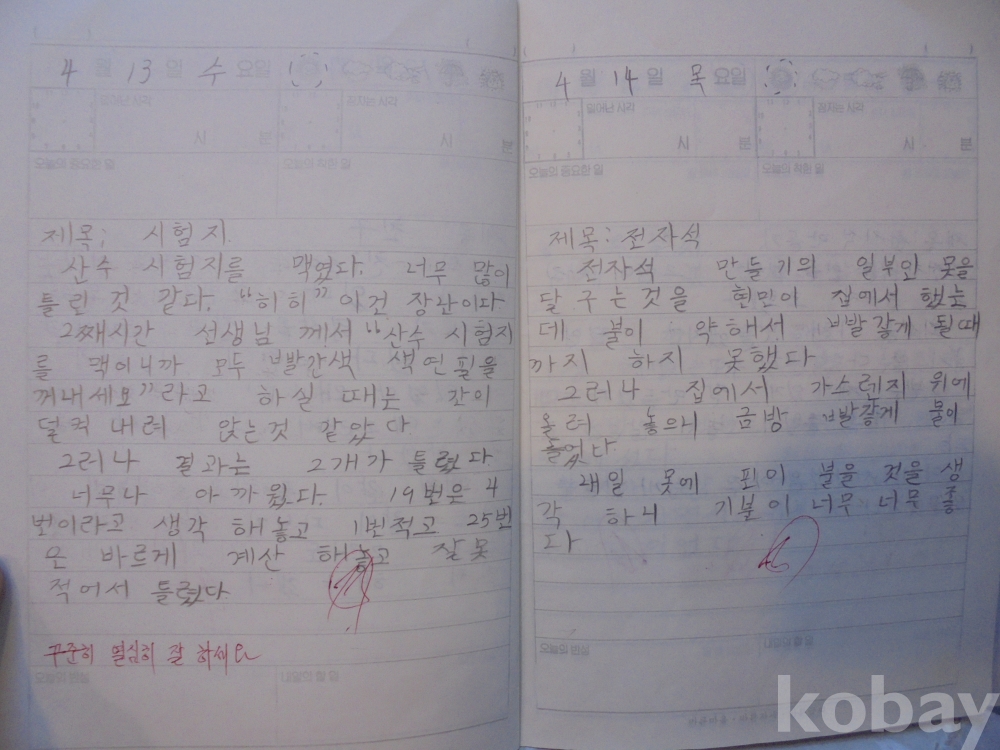 4 월 13 일 수 요일
일어난 시각
잠자는 시각
시 분
오늘의 중요한 일
오늘의 착한 일
제목; 시험지
산수 시험지를 맥였다. 너무 많이
틀린 것 같다. "히히" 이건 장난이다
2째시간 선생님 께서 "산수 시험지
를 맥이니까 모두 빨간색 색연필을
꺼내세요"라고 하실 때는 간이
덜컥 내려 앉는것 같았다.
그러나 결과는 2개가 틀렸다
너무나 아까웠다. 19번은 4
번이라고 생각 해놓고 1번적고 25번
은 바르게 계산 해놓고 잘못
적어서 틀렸다
꾸준히 열심히 잘 하세요
오늘의 반성
4 월 14 일 목 요일
일어난 시각
잠자는 시각
시 분
오늘의 중요한 일
오늘의 착한 일
제목: 전자석
전자석 만들기의 일부인 못을
달구는것을 현민이 집에서 했는
데 불이 약해서 빨갛게 될때
까지 하지 못했다
그러나 집에서 가스렌지 위에
올려 놓으니 금방 빨갛게 불이
들었다
내일 못에 핀이 붙을 것을 생
각 하니 기분이 너무 너무 좋
다
오늘의 반성
kobay